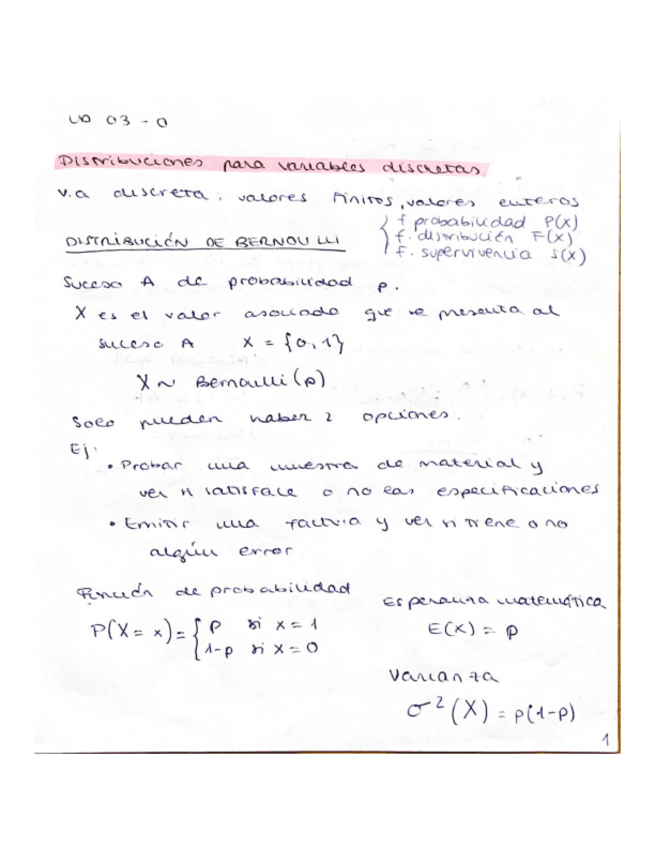 UD 03 - 0
Distribuciones para variables discretas
V.a discreta: valores finitos, valores enteros
f. probabilidad P(X)
f. distribución F(X)
f. supervivencia S(X)
DISTRIBUCIÓN DE BERNOULLI
Suceso A de probabilidad p.
X es el valor asociado que se presenta al
suceso A X = {0,1}
X ~ Bernoulli (p)
Solo pueden haber 2 opciones.
Ej:
• Probar una muestra de material y
ver si satisface o no las especificaciones
• Emitir una factura y ver si tiene o no
algún error
Función de probabilidad
P(X = x) = { p si x = 1
1-p si x = 0
Esperanza matemática
E(X) = p
Varianza
σ² (X) = p(1-p)
1